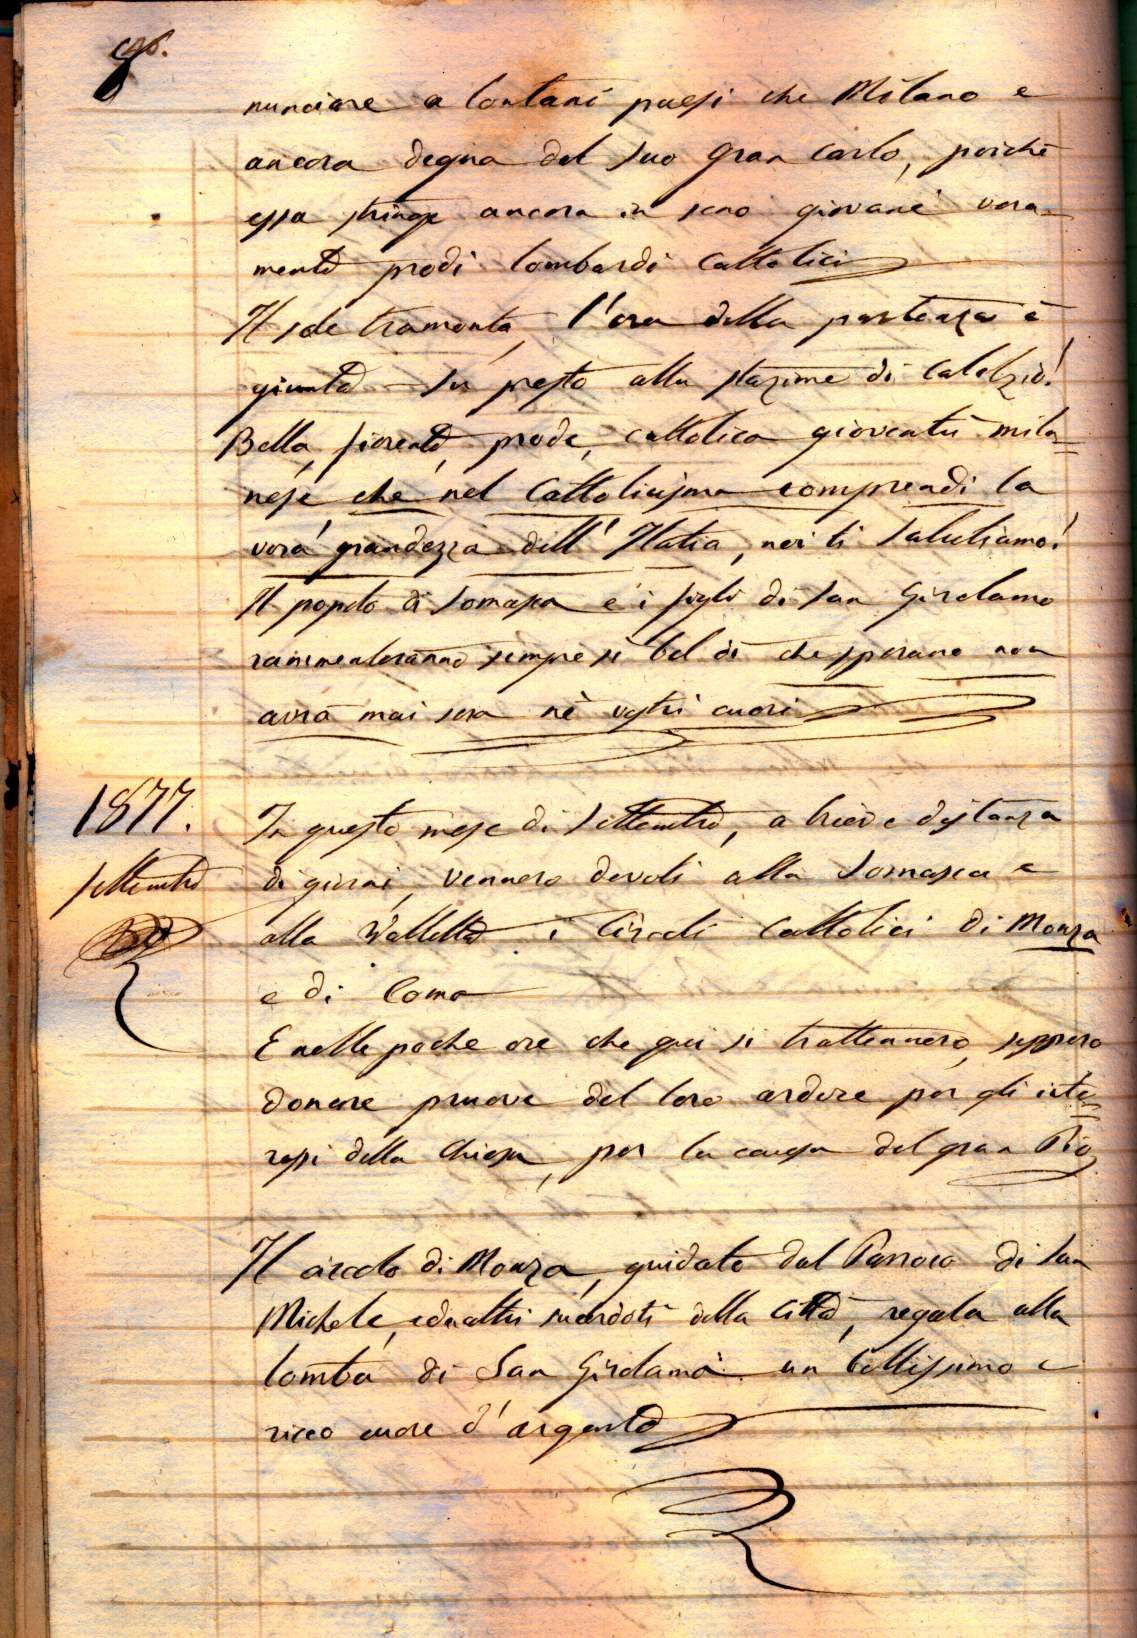 nunciare a lontani paesi che Milano e
ancora degna del suo gran Carlo, poichè
essa stringe ancora in seno giovani vera-
mente prodi lombardi Cattolici
Il sole tramonta, l'ora della partenza è
giunta - su presto alla stazione di Calolzio!
Bella, fiorente, prode, cattolica gioventù mila=
nese che nel Cattolicismo comprendi la
vera grandezza dell'Italia, noi ti salutiamo!
Il popolo di Somasca e i figli di San Girolamo
rammenteranno sempre sì bel dì che sperano non
avrà mai sera nè vostri cuori
1877. In questo mese di Settembre, a breve distanza
Settembre di giorni, vennero devoti alla Somasca e
alla Valletta i Circoli Cattolici di Monza
e di Como
E nelle poche ore che qui si trattennero, seppero
donare pruove del loro ardore per gli inte=
ressi della Chiesa, per la causa del gran Pio
Il circolo di Monza, guidato dal Parroco di San
Michele, ed altri sacerdoti della Città, regala alla
tomba di San Girolamo un bellissimo e
ricco cuore d'argento